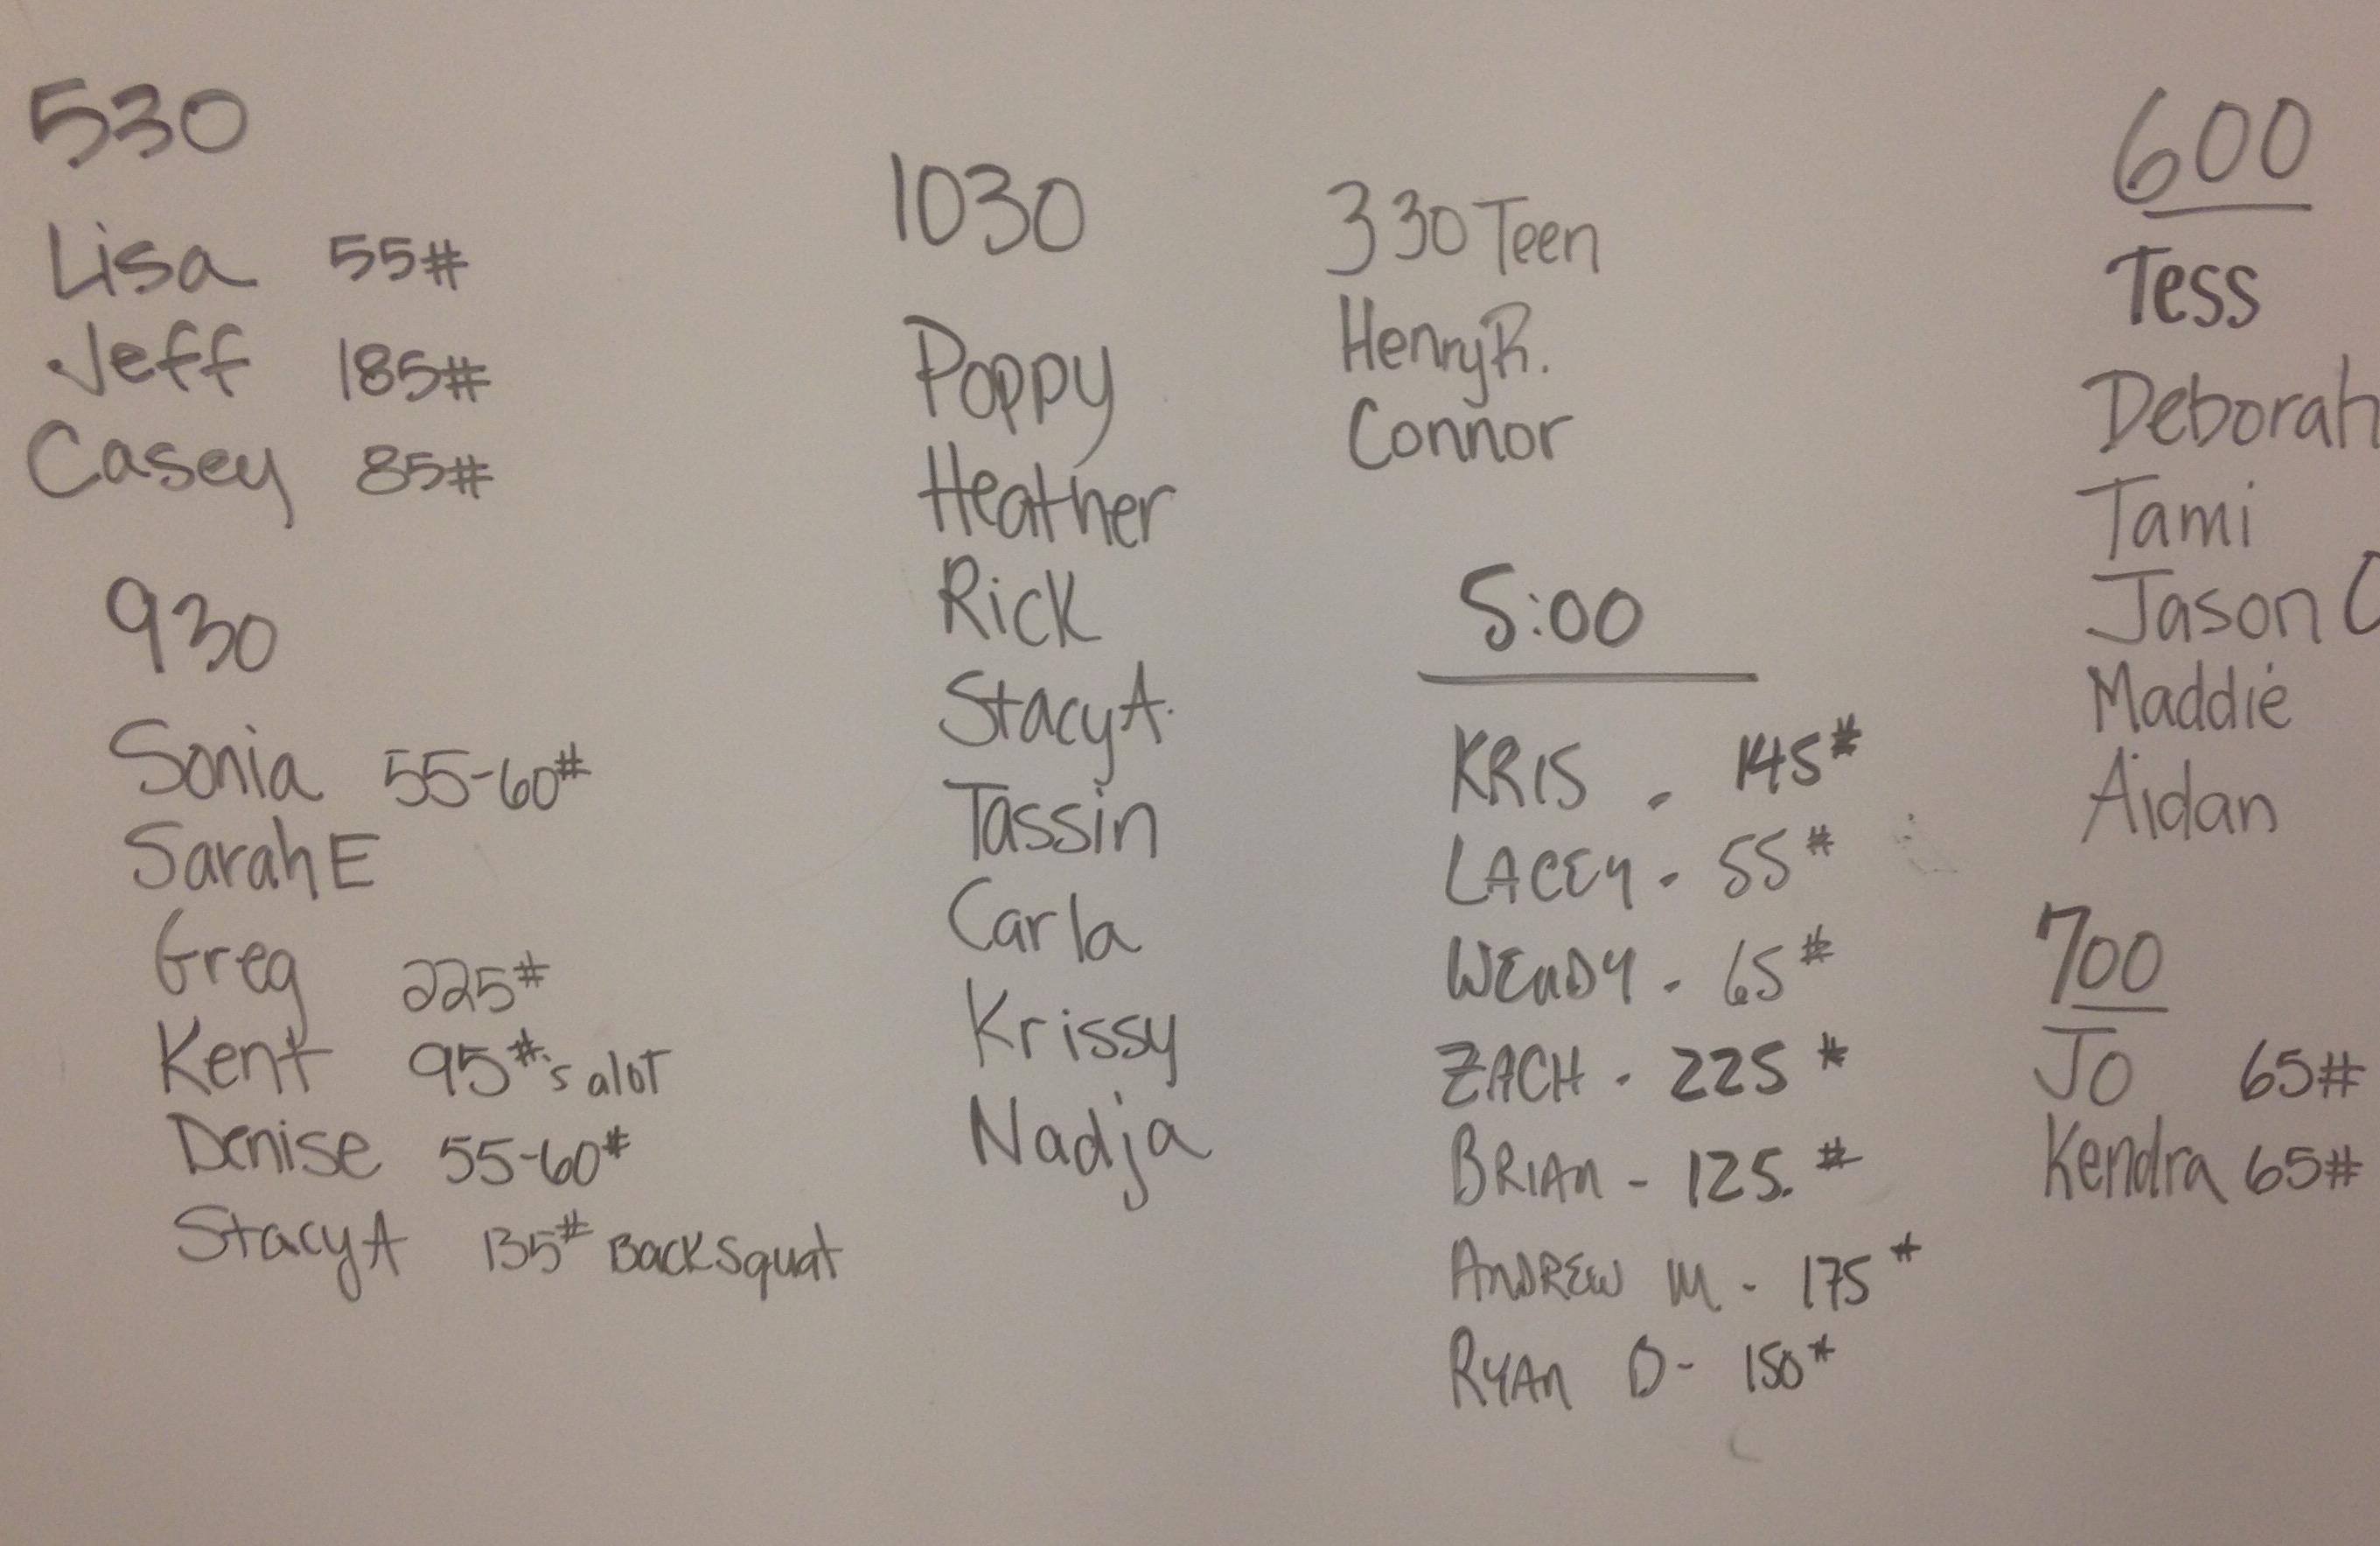 530
Lisa 55#
Jeff 185#
Casey 85#
930
Sonia 55-60#
Sarah E
Greg 225#
Kent 95#'s alot
Denise 55-60#
Stacy A 135# Back Squat
1030
Poppy
Heather
Rick
Stacy A.
Tassin
Carla
Krissy
Nadja
330 Teen
Henry R.
Connor
5:00
KRIS - 145#
LACEY - 55#
WENDY - 65#
ZACH - 225#
BRIAN - 125. #
ANDREW M - 175#
RYAN D - 150#
600
Tess
Deborah
Tami
Jason
Maddie
Aidan
700
Jo 65#
Kendra 65#